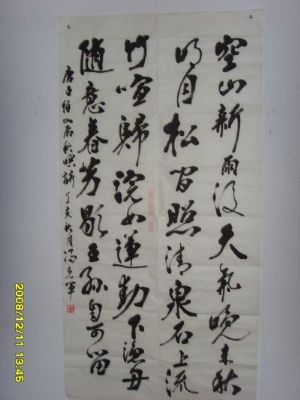 空山新雨後天氣晚来秋
明月松间照清泉石上流
竹喧歸浣女蓮動下渔舟
随意春芳歇王孫自可留
唐王维山居秋暝詩丁亥秋月冯克军
2008/12/11 13:45